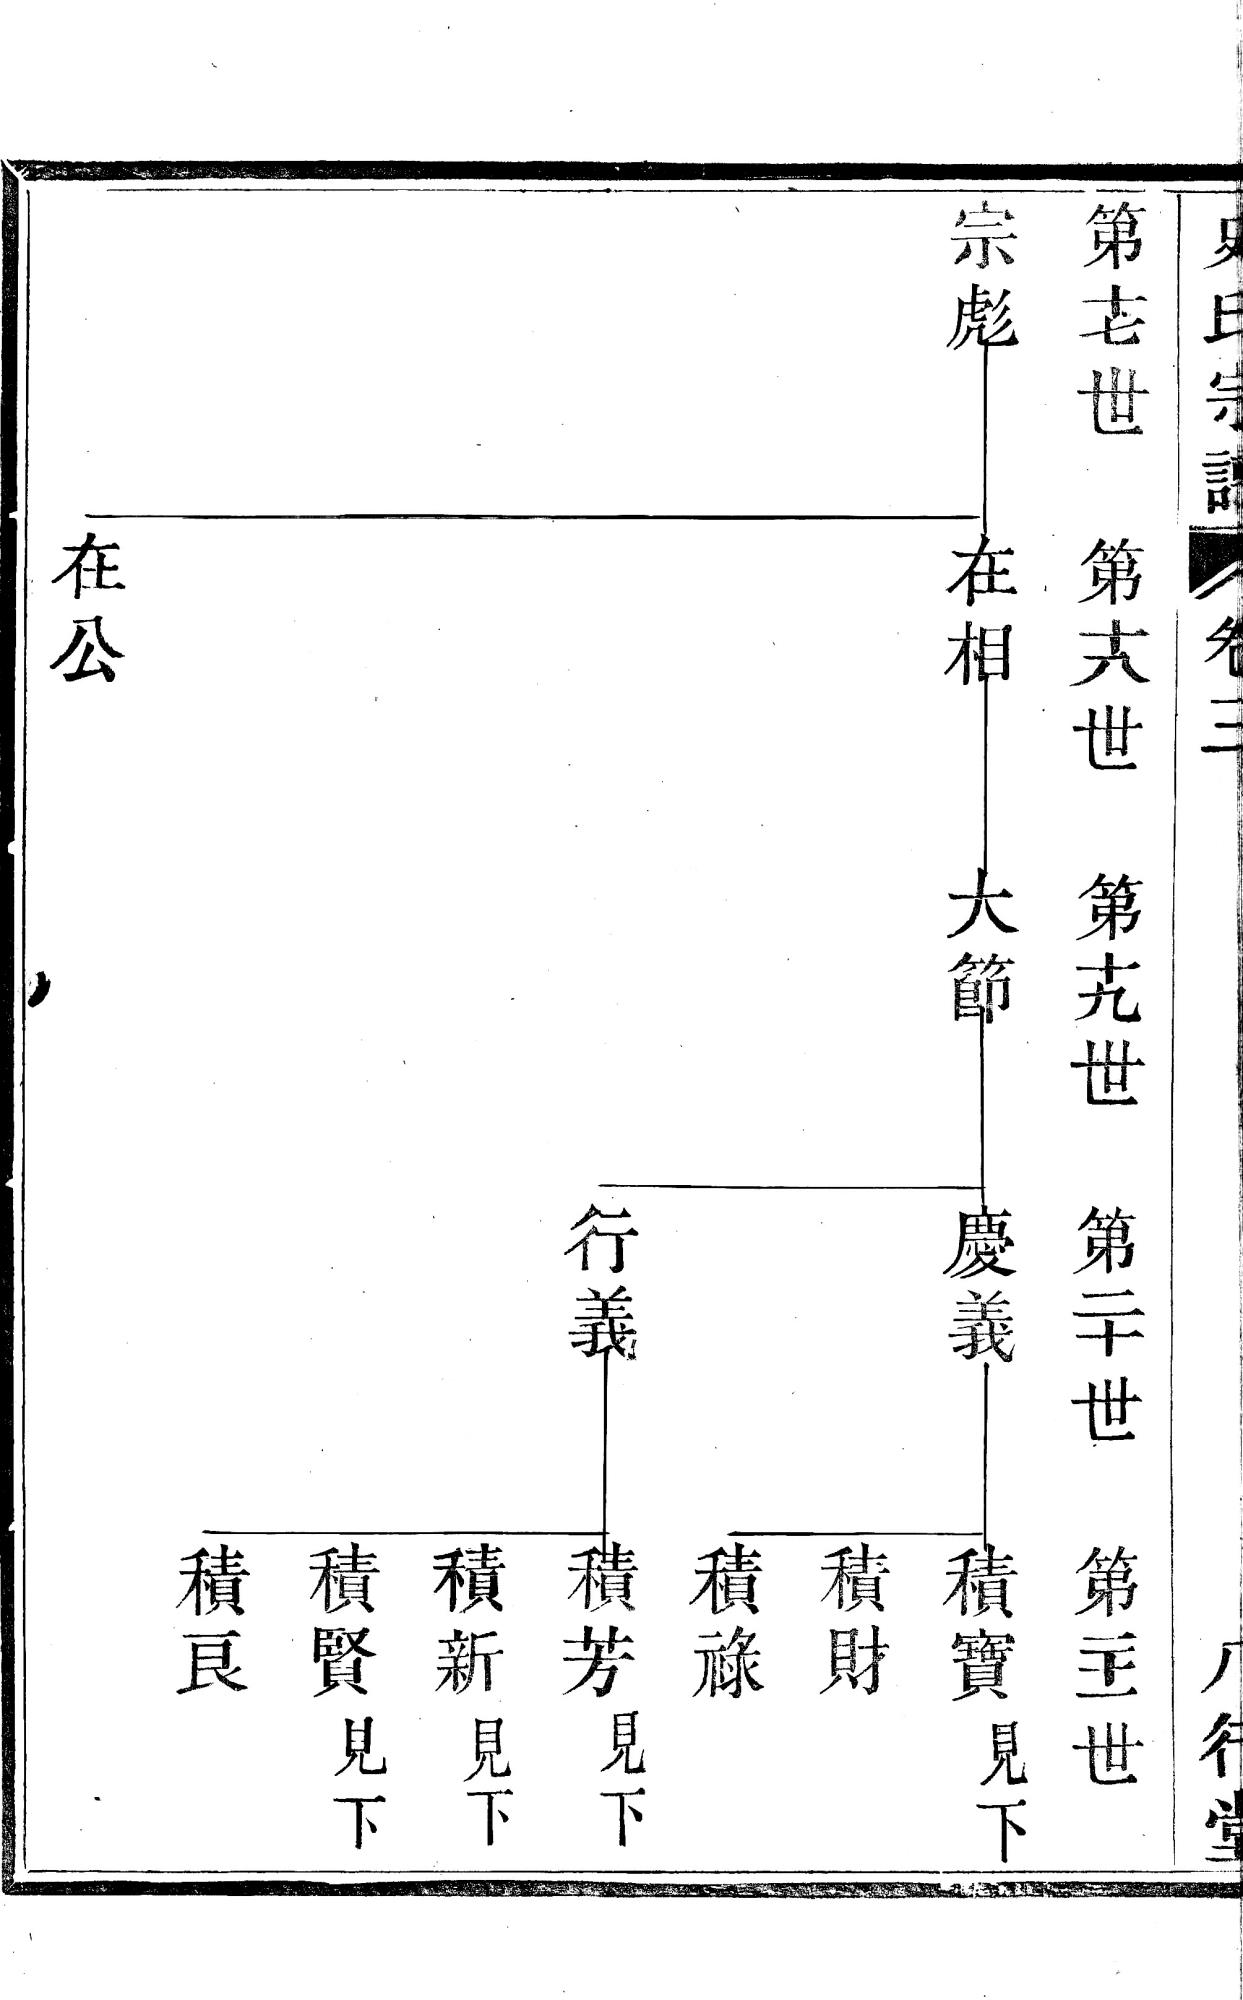 史氏宗譜
卷三
八行堂
第十七世
第十八世
第十九世
第二十世
第二十一世
宗彪
在相
大節
慶義
積寶見下
積財
積祿
行義
積芳見下
積新見下
積賢見下
積良
在公